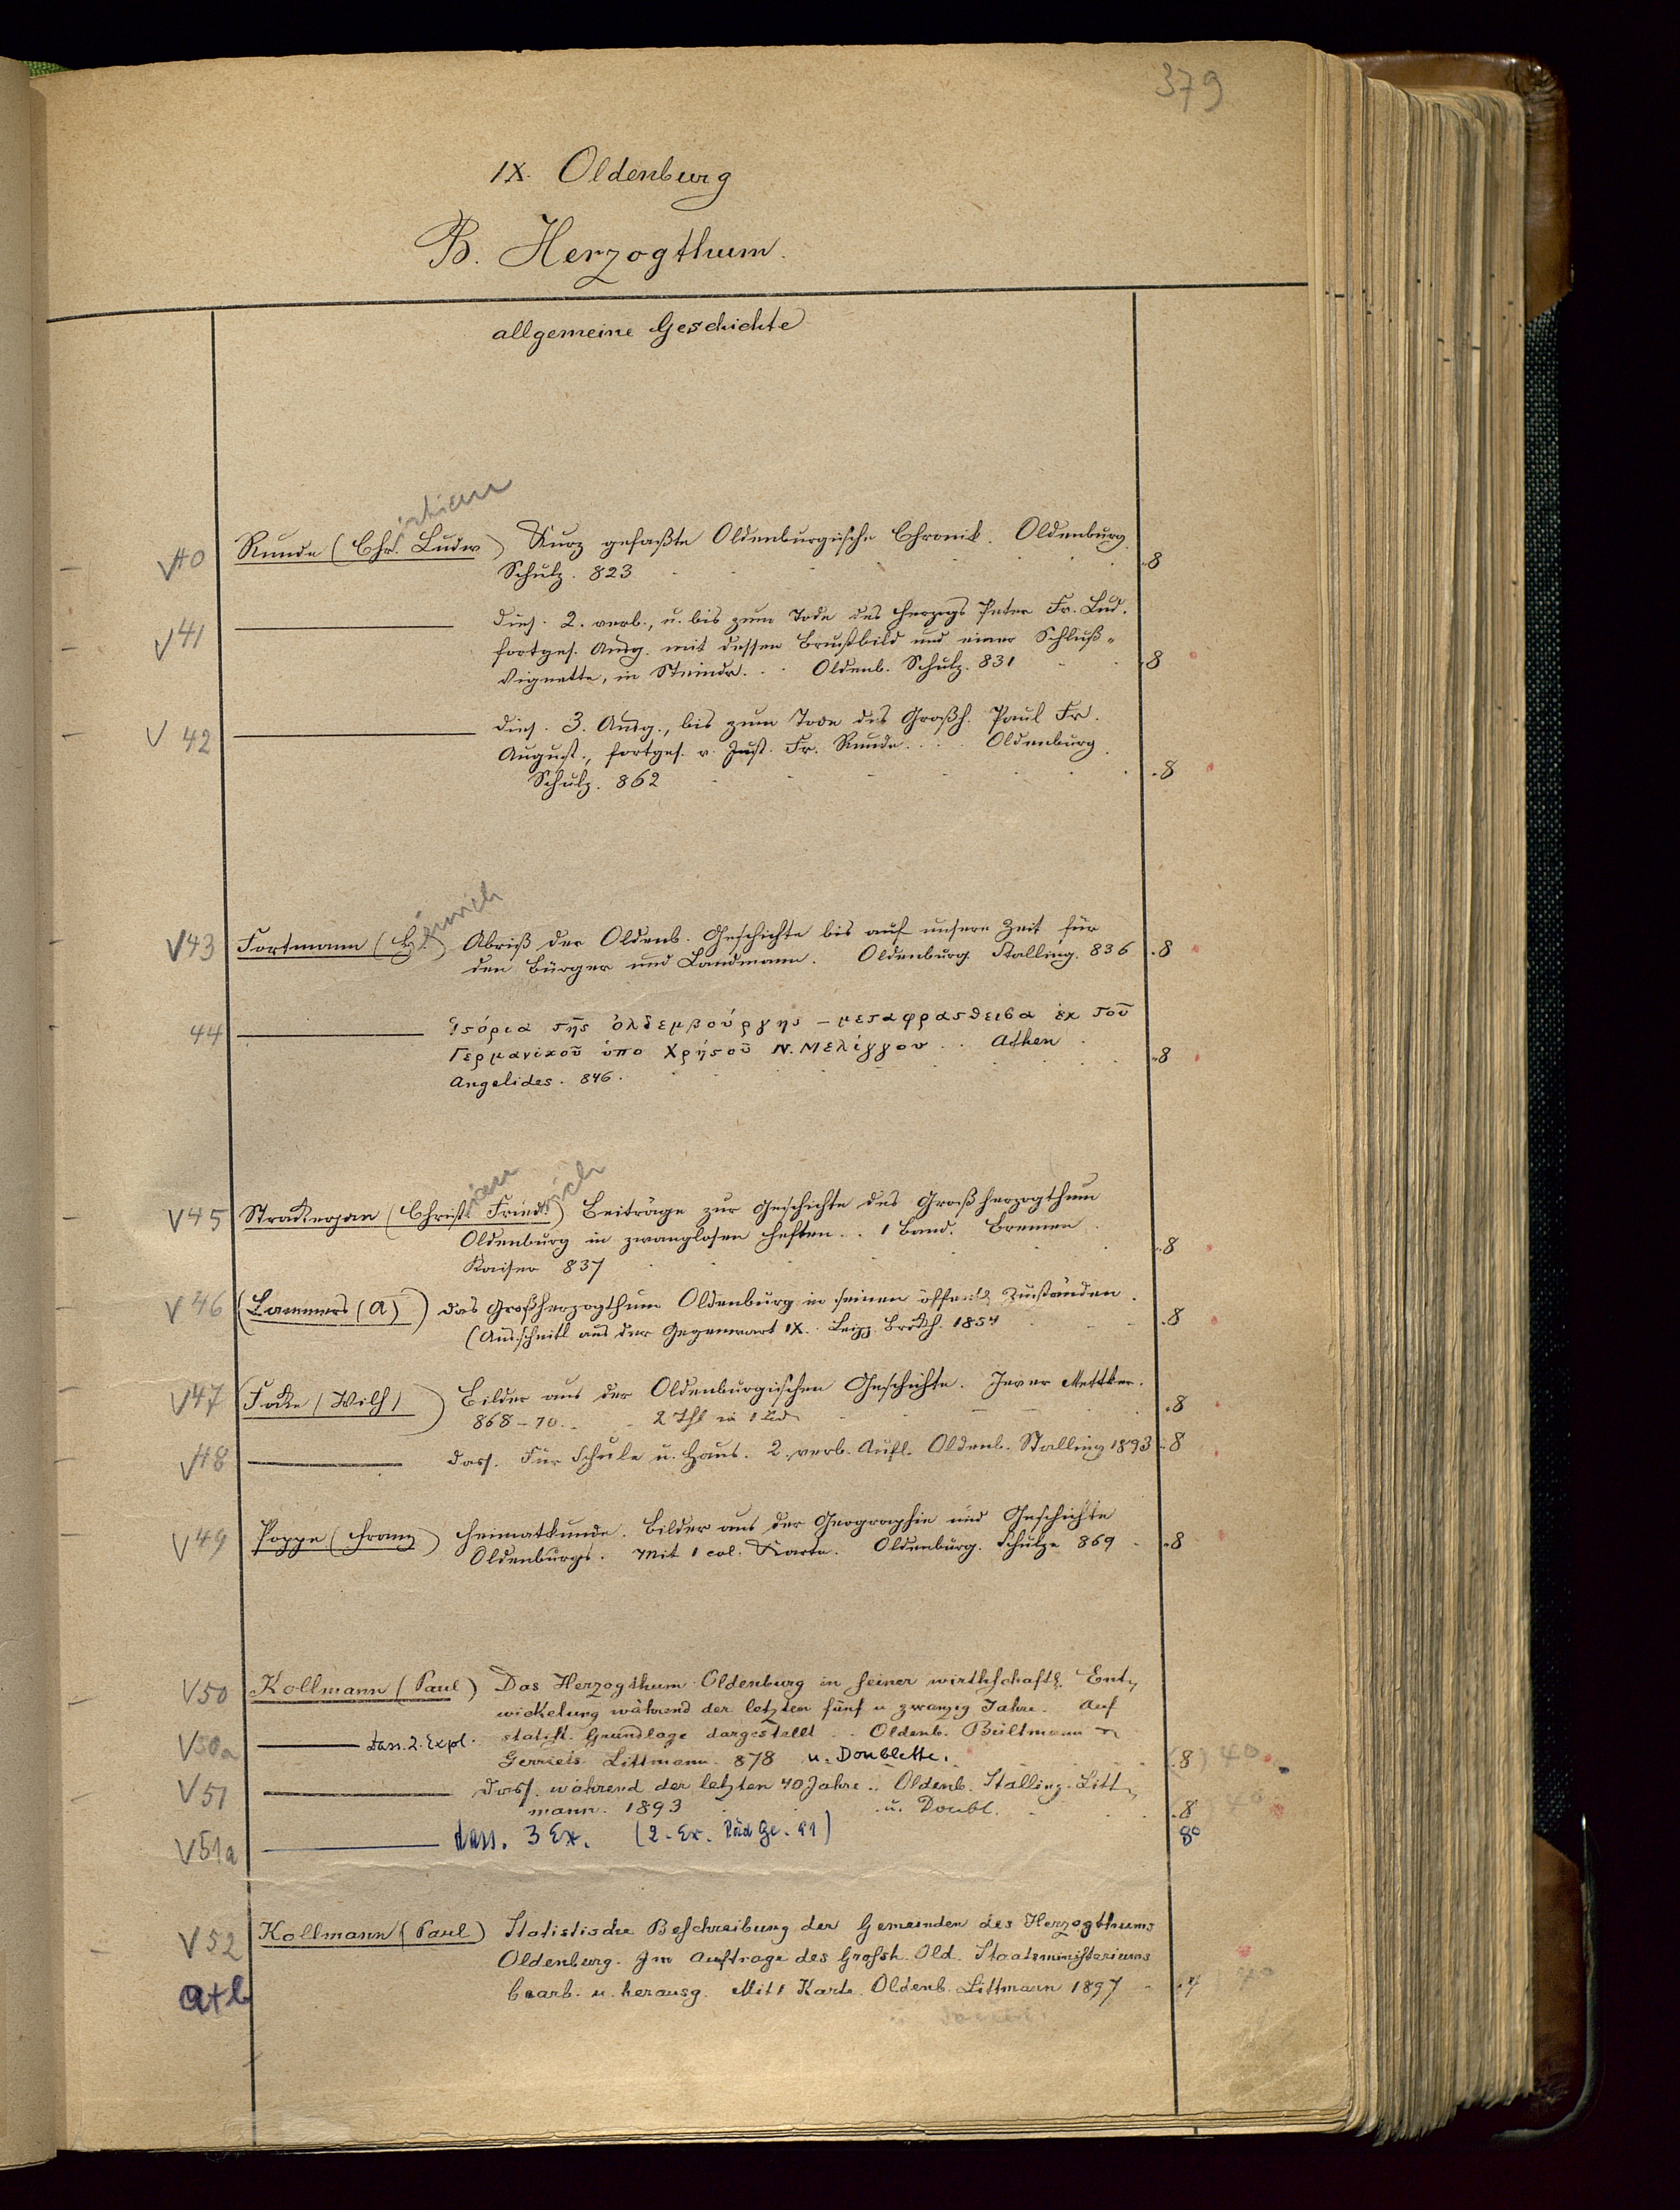 379
IX. Oldenburg
B. Herzogthum.
allgemeine Geschichte
V40 Runde (Chr.istian Ludw) Kurz gefaßte Oldenburgische Chronik. Oldenburg.
Schulz. 823 8
V41 dies. 2. verb., u. bis zum Tode des Herzogs Peter Fr. Lud.
fortges. Ausg. mit dessen Brustbild und einer Schluß-
Vignette, in Steindr. Oldenb. Schulz. 831 8
V 42 dies. 3. Ausg., bis zum Tode des Großh. Paul Fr.
August, fortges. v. Just. Fr. Runde. Oldenburg.
Schulz. 862 8
V43 Fortmann (H.einrich) Abriß der Oldenb. Geschichte bis auf unsere Zeit für
den Bürger und Landmann. Oldenburg Stalling. 836 8
44 Ἱςόρια τῆς ὀλδεμβούργης – μεταφρασθεισα ἐκ τοῦ
Γερμανικοῦ ὑπο Χρήςοῦ Ν. Μελίγγου .. Athen
Angelides. 846. 8
V45 Strackerjan (Christian Friedrich) Beiträge zur Geschichte des Großherzogthum
Oldenburg in zwanglosen Heften .. 1 Band. Bremen.
Kaiser 837 8
V46 (Lammers (A)) das Großherzogthum Oldenburg in seinen öffentl. Zuständen.
(Ausschnitt aus der Gegenwart IX. Leipz. Brckh. 1854 8
V47 (Focke (Wilh)) Bilder aus der Oldenburgischen Geschichte. Jever Mettker.
868–70. 2 Thl in 1 Bd 8
V48 dass. Für Schule u. Haus. 2. verb. Aufl. Oldenb. Stalling 1893 8
V49 Poppe (Franz) Heimatkunde. Bilder aus der Geographie und Geschichte
Oldenburgs. Mit 1 col. Karte. Oldenburg. Schulze 869 8
V50 Kollmann (Paul) Das Herzogthum Oldenburg in seiner wirthschaftl. Ent-
wickelung während der letzten fünf u zwanzig Jahre. Auf
V50a dass. 2. Expl. statist. Grundlage dargestellt .. Oldenb. Bültmann u
Gerriets Littmann. 878 u. Doublette. (8) 40
V51 dass. während der letzten 40 Jahre .. Oldenb. Stalling. Litt-
mann. 1893 u. Doubl. 8 40
V51a dass. 3 Ex. 8°
V52 Kollmann (Paul) Statistische Beschreibung der Gemeinden des Herzogthums
Oldenburg. Im Auftrage des Grossh. Old. Staatsministeriums
a+b bearb. u. herausg. Mit 1 Karte. Oldenb. Littmann 1897 4 40